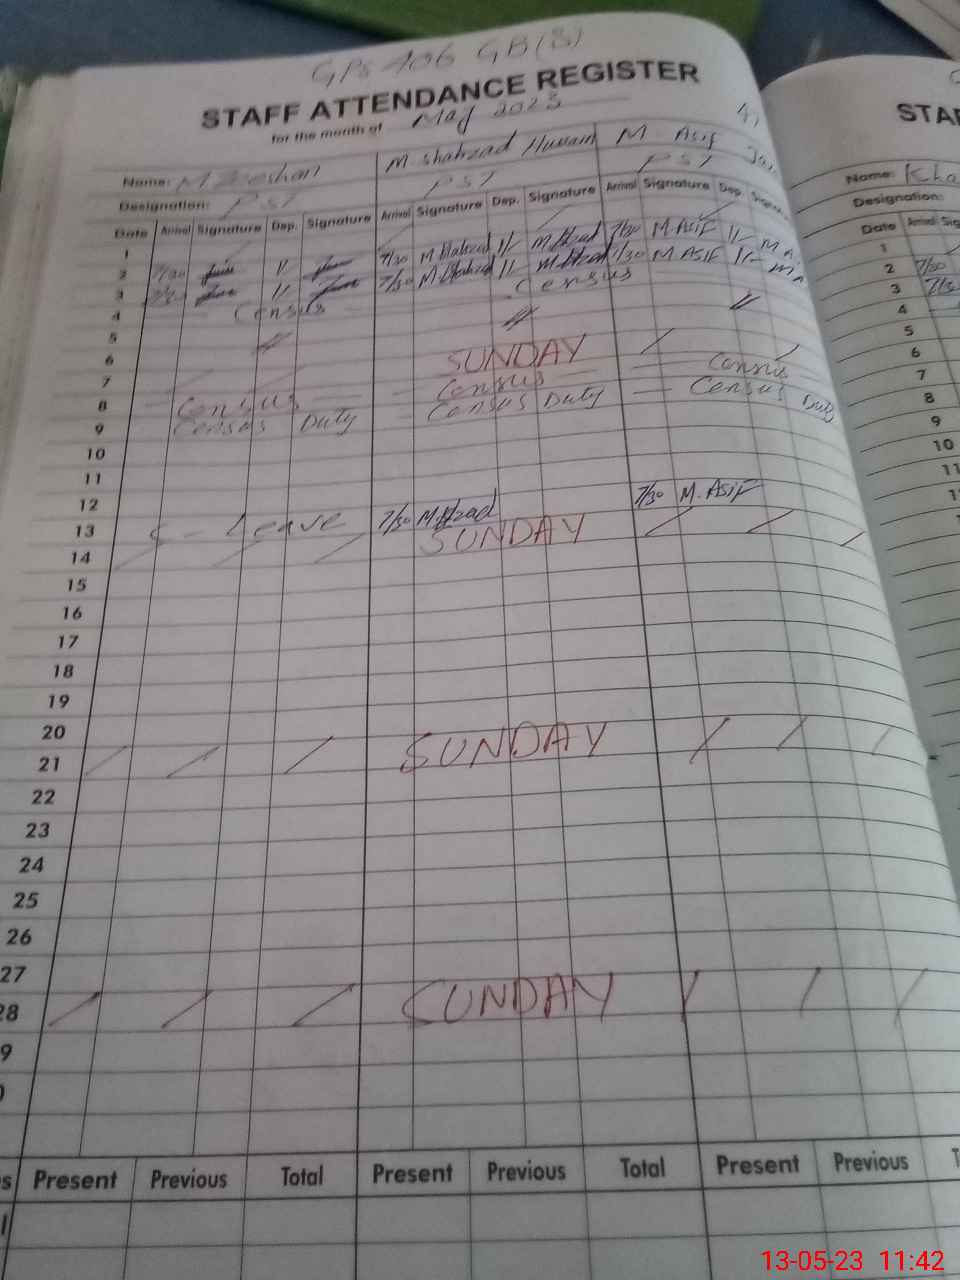 GPS 406 GB(S)
STAFF ATTENDANCE REGISTER
for the month of May 2023
Name: M Zeeshan M Shahzad Hussain M Asif
Designation: PST PST PST
Date Arrival Signature Dep. Signature Arrival Signature Dep. Signature Arrival Signature Dep. Signature
1
2 7/30 11 7/30 M Shahzad 11 7/30 M ASIF 11 MA
3 7/30 11 7/30 M Shahzad 11 7/30 M ASIF 11 MA
4 Census Census
5 〃 〃 〃
6
7 SUNDAY
8 Census Census Census
9 Census Duty Census Duty Census Duty
10
11
12
13 Leave 7/30 7/30 M. ASIF
14 SUNDAY
15
16
17
18
19
20
21 SUNDAY
22
23
24
25
26
27
28 SUNDAY
9
0
s Present Previous Total Present Previous Total Present Previous T
STA
Name: Kha
Designation:
Date Arrival Sig
1
2 7/30
3 7/3
4
5
6
7
8
9
10
11
13-05-23 11:42